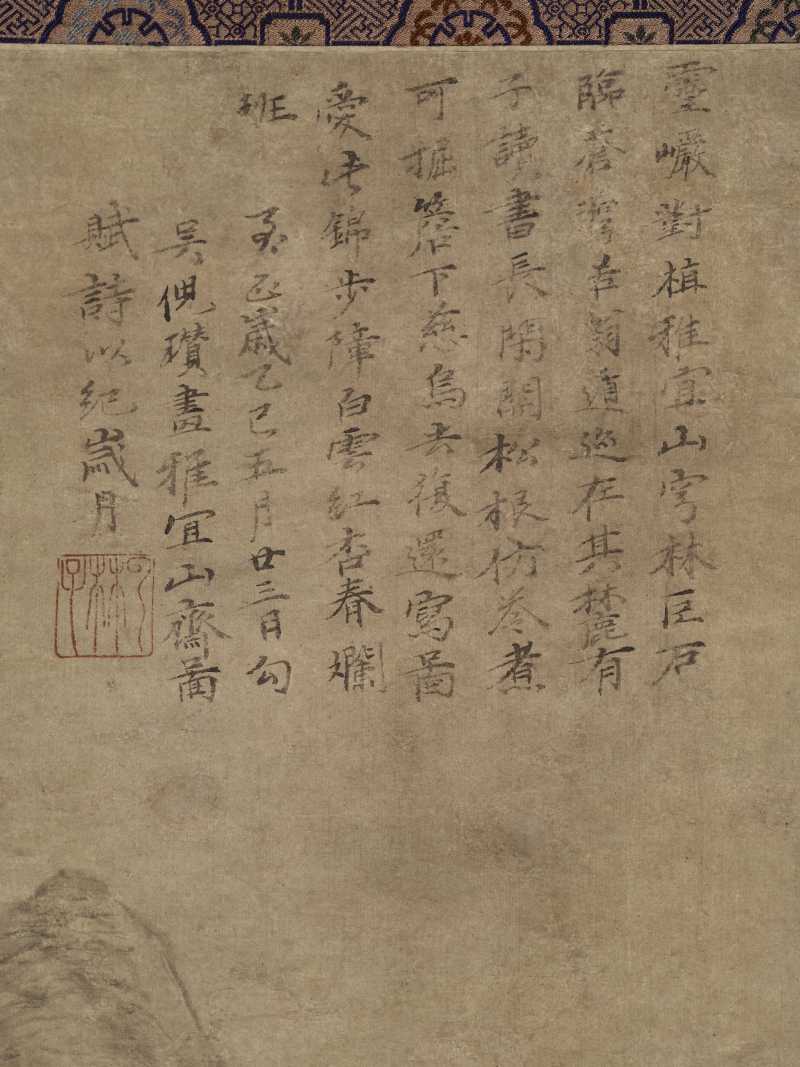 靈巗對植雅宜山穹林巨石
臨蒼灣幸翁遁迹在其麓有
子讀書長閉關松根伏苓煮
可掘簷下慈烏去復還寫啚
愛此錦步障白雲紅杏春斕
班 至正歲乙巳五月廿三日勾
吳倪瓚畫雅宜山齋啚
賦詩以紀歲月